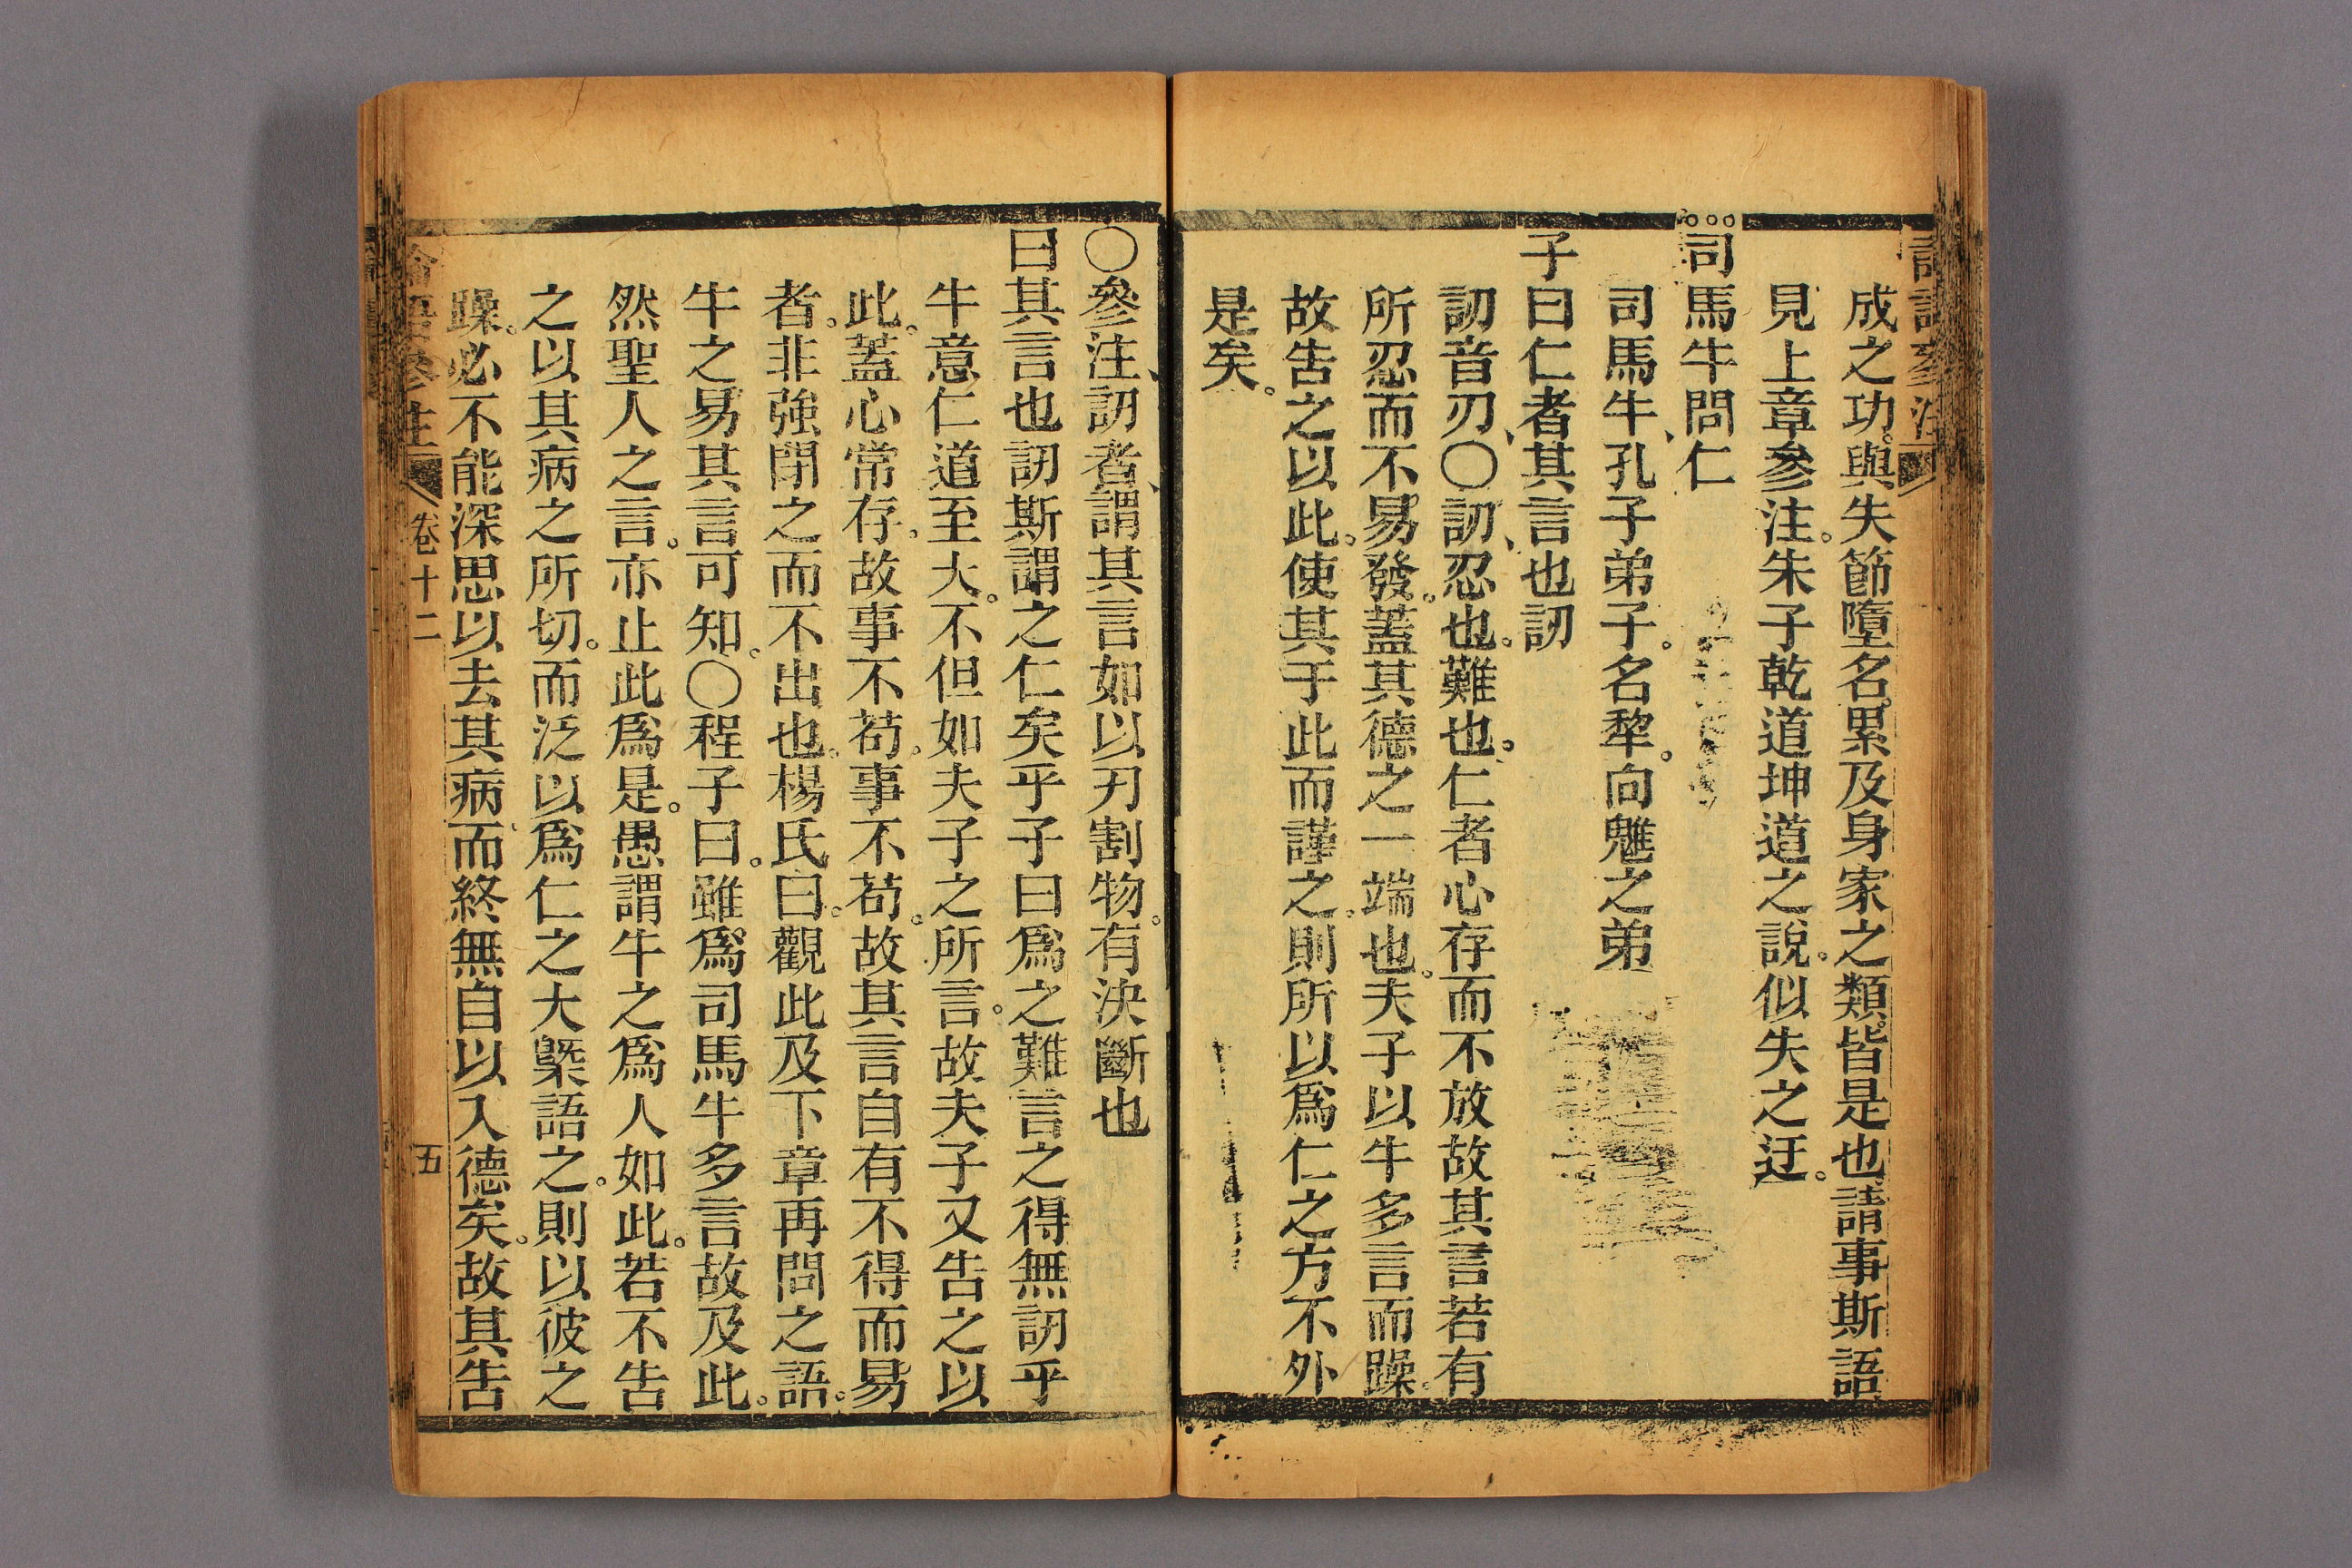 成之功。與失節墮名。累及身家之類。皆是也。請事斯語
見上章參注。朱子乾道坤道之說。似失之迂。
司馬牛問仁
司馬牛、孔子弟子。名犂。向魋之弟
子曰仁者其言也訒
訒音刃、〇訒、忍也。難也。仁者心存而不放故其言若有
所忍而不易發。蓋其德之一端也。夫子以牛多言而躁。
故告之以此。使其于此而謹之。則所以爲仁之方不外
是矣。
〇參注、訒者、謂其言如以刃割物。有決斷也
曰其言也訒斯謂之仁矣乎子曰爲之難言之得無訒乎
牛意仁道至大。不但如夫子之所言。故夫子又告之以
此。蓋心常存。故事不苟。事不苟。故其言自有不得而易
者。非強閉之而不出也。楊氏曰。觀此及下章再問之語。
牛之易其言可知。〇程子曰。雖爲司馬牛多言故及此。
然聖人之言。亦止此爲是。愚謂牛之爲人如此。若不告
之以其病之所切。而泛以爲仁之大槩語之。則以彼之
躁。必不能深思以去其病、而終無自以入德矣。故其告
論語參注 卷十二 五